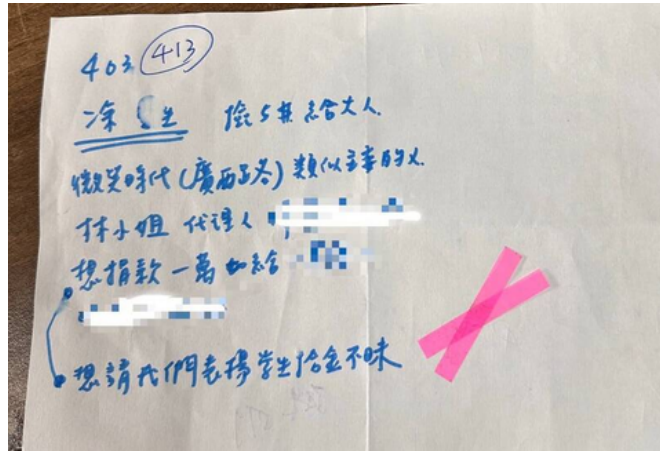 403 413
涂 生 撿5其給大人
微笑時代(廣西子冬)類似主委的人
林小姐 代理人
想捐款一萬 給
想請我們表揚學生拾金不昧